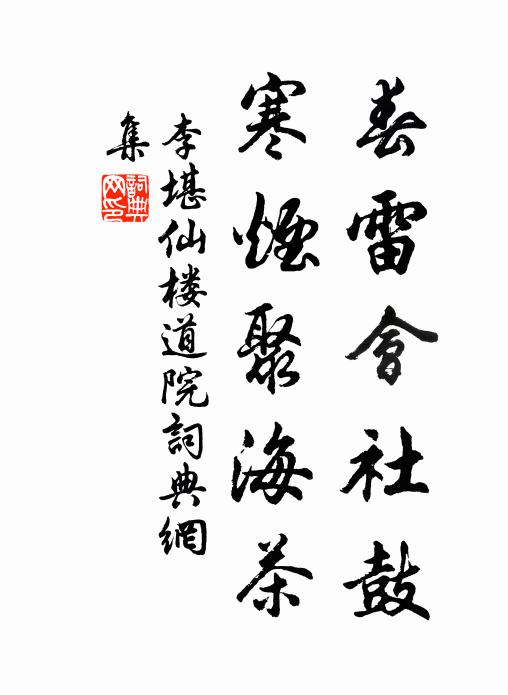 春雷會社鼓
寒煙聚海茶
李堪仙楼道院詞典網
集
詞典
网印